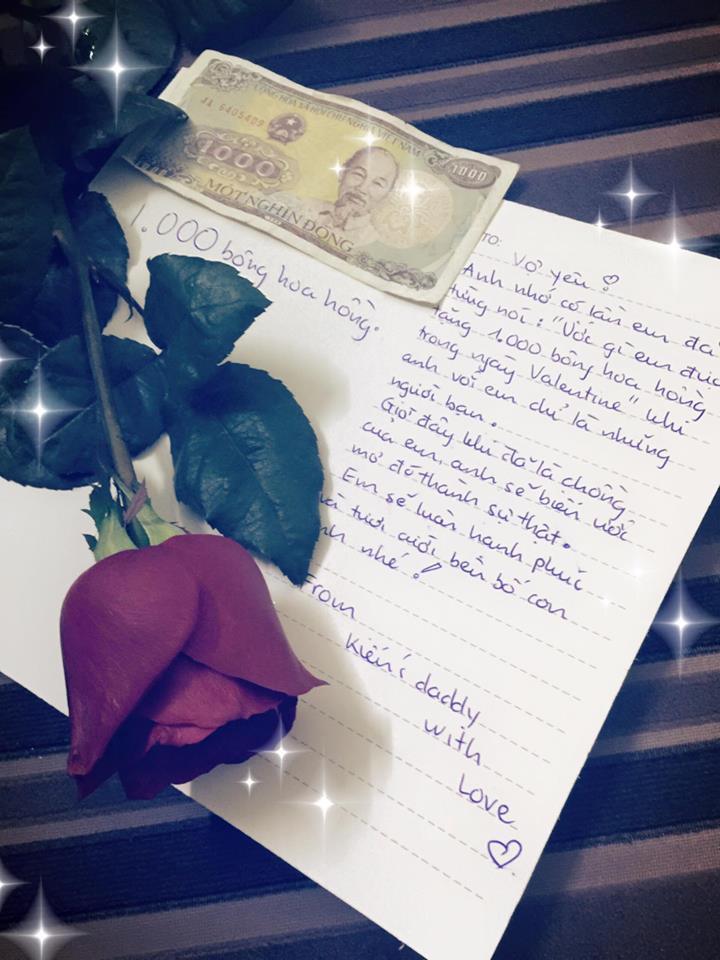 CỘNG HÒA XÃ HỘI CHỦ NGHĨA VIỆT NAM
JA 6405409
1000
1000
MỘT NGHÌN ĐỒNG
1.000 bông hoa hồng.
TO: Vợ yêu ♡
Anh nhớ có lần em đã
từng nói: "Ước gì em được
tặng 1.000 bông hoa hồng
trong ngày Valentine" khi
anh với em chỉ là những
người bạn.
Giờ đây khi đã là chồng
của em, anh sẽ biến ước
mơ đó thành sự thật.
Em sẽ luôn hạnh phúc
và tươi cười bên bố con
nh nhé!
From
Kiến's daddy
with
Love
♡